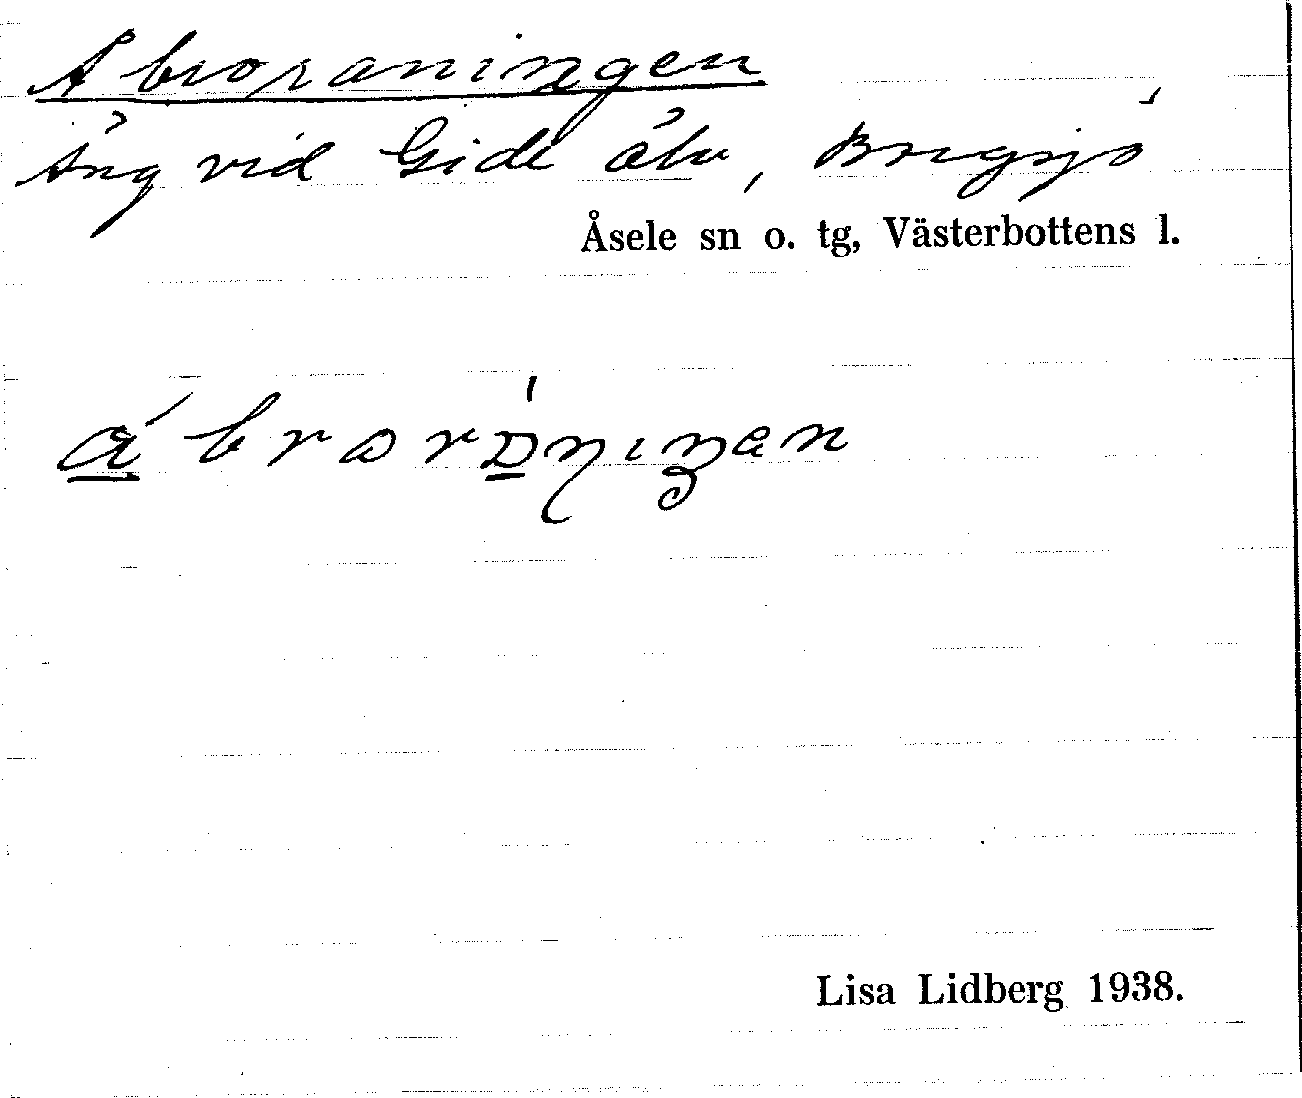 Åbroraningen
Äng vid Gide älv, Borgsjö
Åsele sn o. tg, Västerbottens l.
Lisa Lidberg 1938.